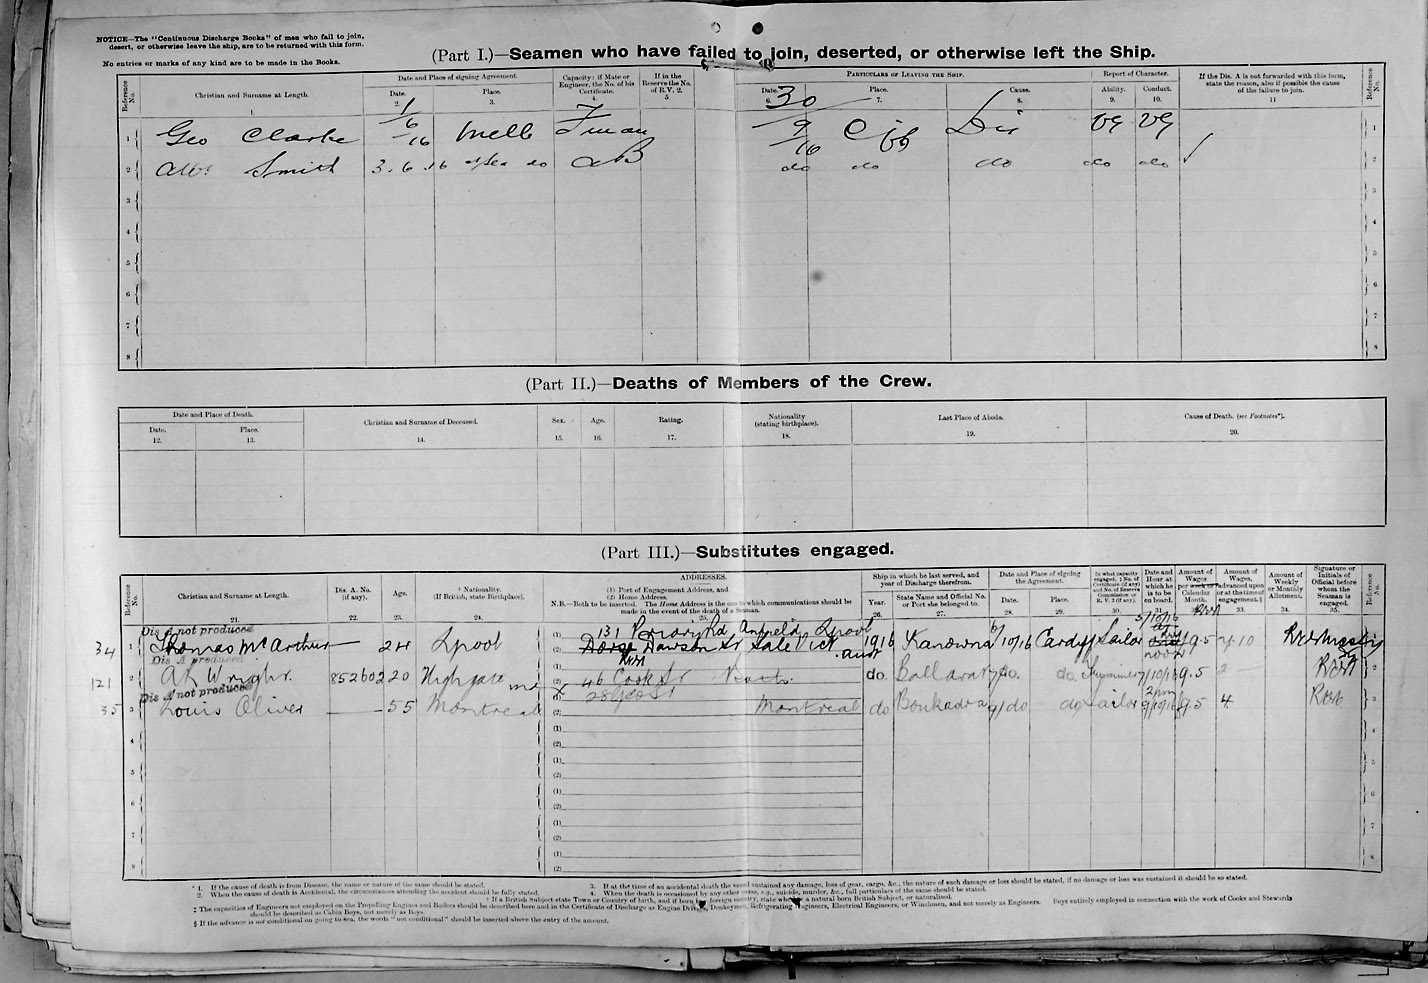 NOTICE—The "Continuous Discharge Books" of men who fail to join,
desert, or otherwise leave the ship, are to be returned with this form.
No entries or marks of any kind are to be made in the Books.
(Part I.)—Seamen who have failed to join, deserted, or otherwise left the Ship.
Reference No. Christian and Surname at Length. 1 Date and Place of signing Agreement. Date. 2. Place. 3. Capacity: if Mate or Engineer, the No. of his Certificate. 4. If in the Reserve the No. of R.V. 2. 5 Particulars of Leaving the Ship. Date. 6. Place. 7. Cause. 8. Report of Character. Ability. 9. Conduct. 10. If the Dis. A is not forwarded with this form, state the reason, also if possible the cause of the failure to join. 11 Reference No.
1 Geo Clarke 1/6/16 Melb Fman 30/9/16 Dis VG VG 1
2 Smith 3.6.16 at Sea do AB do do do do do 2
3 3
4 4
5 5
6 6
7 7
8 8
(Part II.)—Deaths of Members of the Crew.
Date and Place of Death. Date. 12. Place. 13. Christian and Surname of Deceased. 14. Sex. 15. Age. 16. Rating. 17. Nationality (stating birthplace). 18. Last Place of Abode. 19. Cause of Death. (see Footnotes*). 20.
(Part III.)—Substitutes engaged.
Reference No. Christian and Surname at Length. 21. Dis. A. No. (if any). 22. Age. 23. † Nationality. (If British, state Birthplace). 24. ADDRESSES. (1) Port of Engagement Address, and (2) Home Address. N.B.—Both to be inserted. The Home Address is the one to which communications should be made in the event of the death of a Seaman. 25. Ship in which he last served, and year of Discharge therefrom. Year. 26. State Name and Official No. or Port she belonged to. 27. Date and Place of signing the Agreement. Date. 28. Place. 29. In what capacity engaged. ‡ No. of Certificate (if any) and No. of Reserve Commission or R. V. 2 (if any). 30. Date and Hour at which he is to be on board. 31. Amount of Wages per week or Calendar Month. 32. Amount of Wages, advanced upon or at the time of engagement. § 33. Amount of Weekly or Monthly Allotment. 34. Signature or Initials of Official before whom the Seaman is engaged. 35. Reference No.
Dis A not produced
34 1 Thomas McArthur 24 Lpool (1) 131 Anfield Lpool (2) Dawson St Sale Vict Aust 1916 Kanowna 6/10/16 Cardiff Sailor 5/10/16 noon 9.5 4 10 1
Dis A produced
121 2 A Wright. 852602 20 Highgate 46 Cook St do. Ballarat 7/do. do. 7/10/16 9.5 2 2
Dis A not produced
35 3 Louis Oliver 55 Montreal (1) 28 Geo St (2) Montreal do Bonkadra 9/do do Sailor 2pm 9/10/16 9.5 4 3
4 (1) (2) 4
5 (1) (2) 5
6 (1) (2) 6
7 (1) (2) 7
8 (1) (2) 8
* 1. If the cause of death is from Disease, the name or nature of the same should be stated.
2. When the cause of death is Accidental, the circumstances attending the accident should be fully stated.
3. If at the time of an accidental death the vessel sustained any damage, loss of gear, cargo, &c., the nature of such damage or loss should be stated, if no damage or loss was sustained it should be so stated.
4. When the death is occasioned by any other cause, e.g., suicide, murder, &c., full particulars of the same should be stated.
† If a British Subject state Town or Country of birth, and if born in a foreign country, state whether a natural born British Subject, or naturalized.
‡ The capacities of Engineers not employed on the Propelling Engines and Boilers should be described here and in the Certificate of Discharge as Engine Drivers, Donkeymen, Refrigerating Engineers, Electrical Engineers, or Winchmen, and not merely as Engineers. Boys entirely employed in connection with the work of Cooks and Stewards
should be described as Cabin Boys, not merely as Boys.
§ If the advance is not conditional on going to sea, the words "not conditional" should be inserted above the entry of the amount.